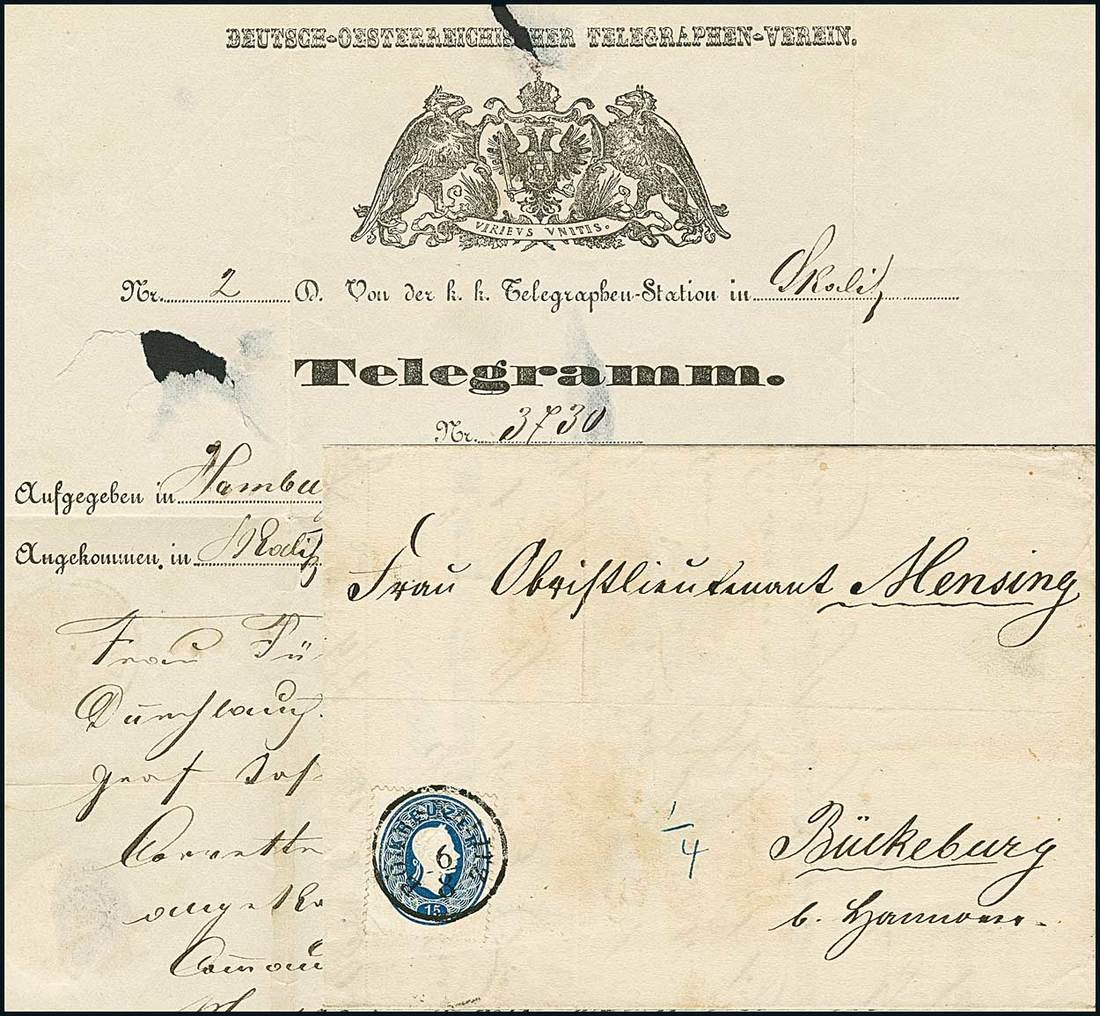 DEUTSCH-OESTERREICHISCHER TELEGRAPHEN-VEREIN.
VIRIBVS VNITIS.
Nr. 2 D. Von der k. k. Telegraphen-Station in Skalitz
Telegramm.
Nr. 3730
Aufgegeben in Hambu
Angekommen, in Skalitz
Frau Fü
Durchlauch
Graf
Corvette
Frau Obristlieutenant Mensing
Bückeburg
b. Hannover.
1/4
6
8
15